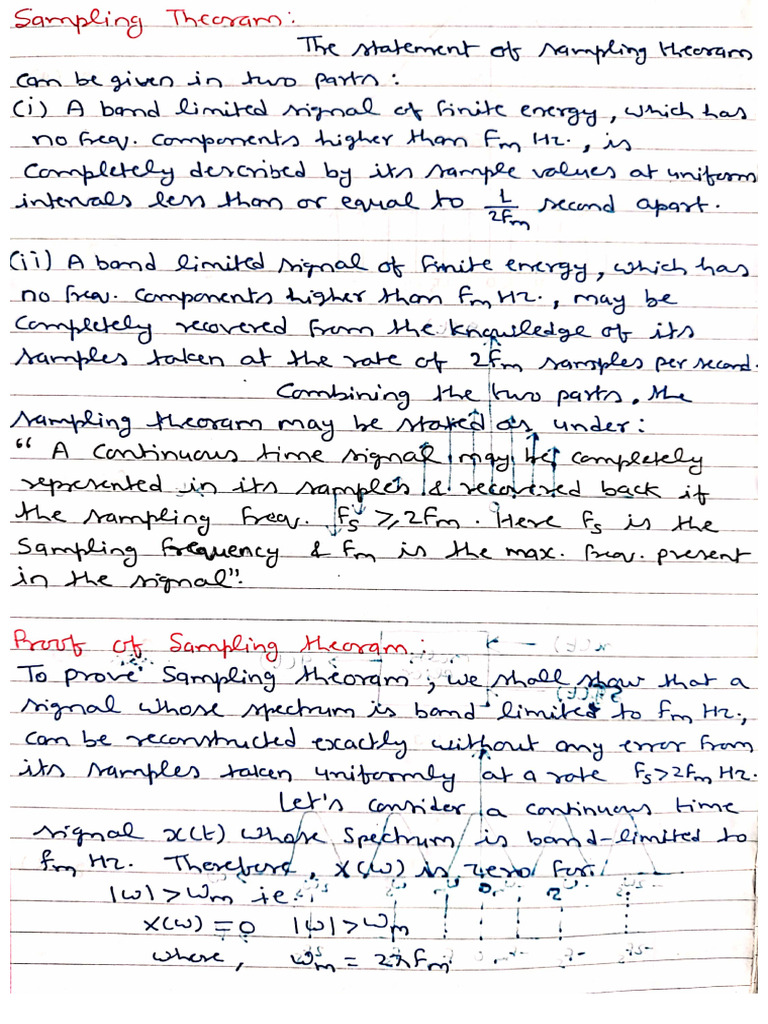 Sampling Theoram:
The statement of sampling theoram
can be given in two parts:
(i) A band limited signal of finite energy, which has
no freq. components higher than fm Hz., is
completely described by its sample values at uniform
intervals less than or equal to 1/2fm second apart.
(ii) A band limited signal of finite energy, which has
no freq. components higher than fm Hz., may be
completely recovered from the knowledge of its
samples taken at the rate of 2fm samples per second.
Combining the two parts, the
sampling theoram may be stated as under:
“ A continuous time signal may be completely
represented in its samples & recovered back if
the sampling freq. fs ≥ 2fm. Here fs is the
Sampling frequency & fm is the max. freq. present
in the signal”.
Proof of Sampling theoram:
To prove Sampling theoram, we shall show that a
signal whose spectrum is band limited to fm Hz.,
can be reconstructed exactly without any error from
its samples taken uniformly at a rate fs>2fm Hz.
Let's consider a continuous time
signal x(t) whose spectrum is band-limited to
fm Hz. Therefore, X(ω) is zero for
|ω| > ωm ie.
X(ω) = 0 |ω| > ωm
where, ωm = 2πfm